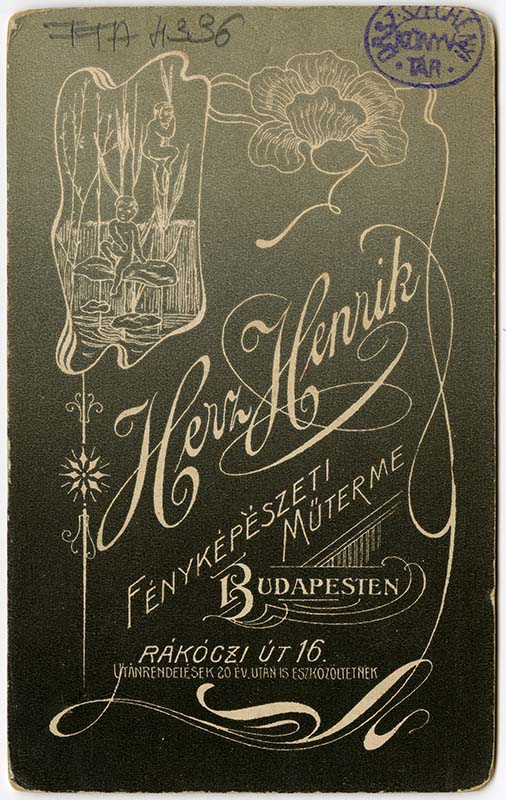 FTA 4336
ORSZ. SZÉCHÉNYI
KÖNYV
TÁR
Herz Henrik
FÉNYKÉPÉSZETI
MŰTERME
BUDAPESTEN
RÁKÓCZI ÚT 16.
UTÁNRENDELÉSEK 20 ÉV. UTÁN IS ESZKÖZÖLTETNEK